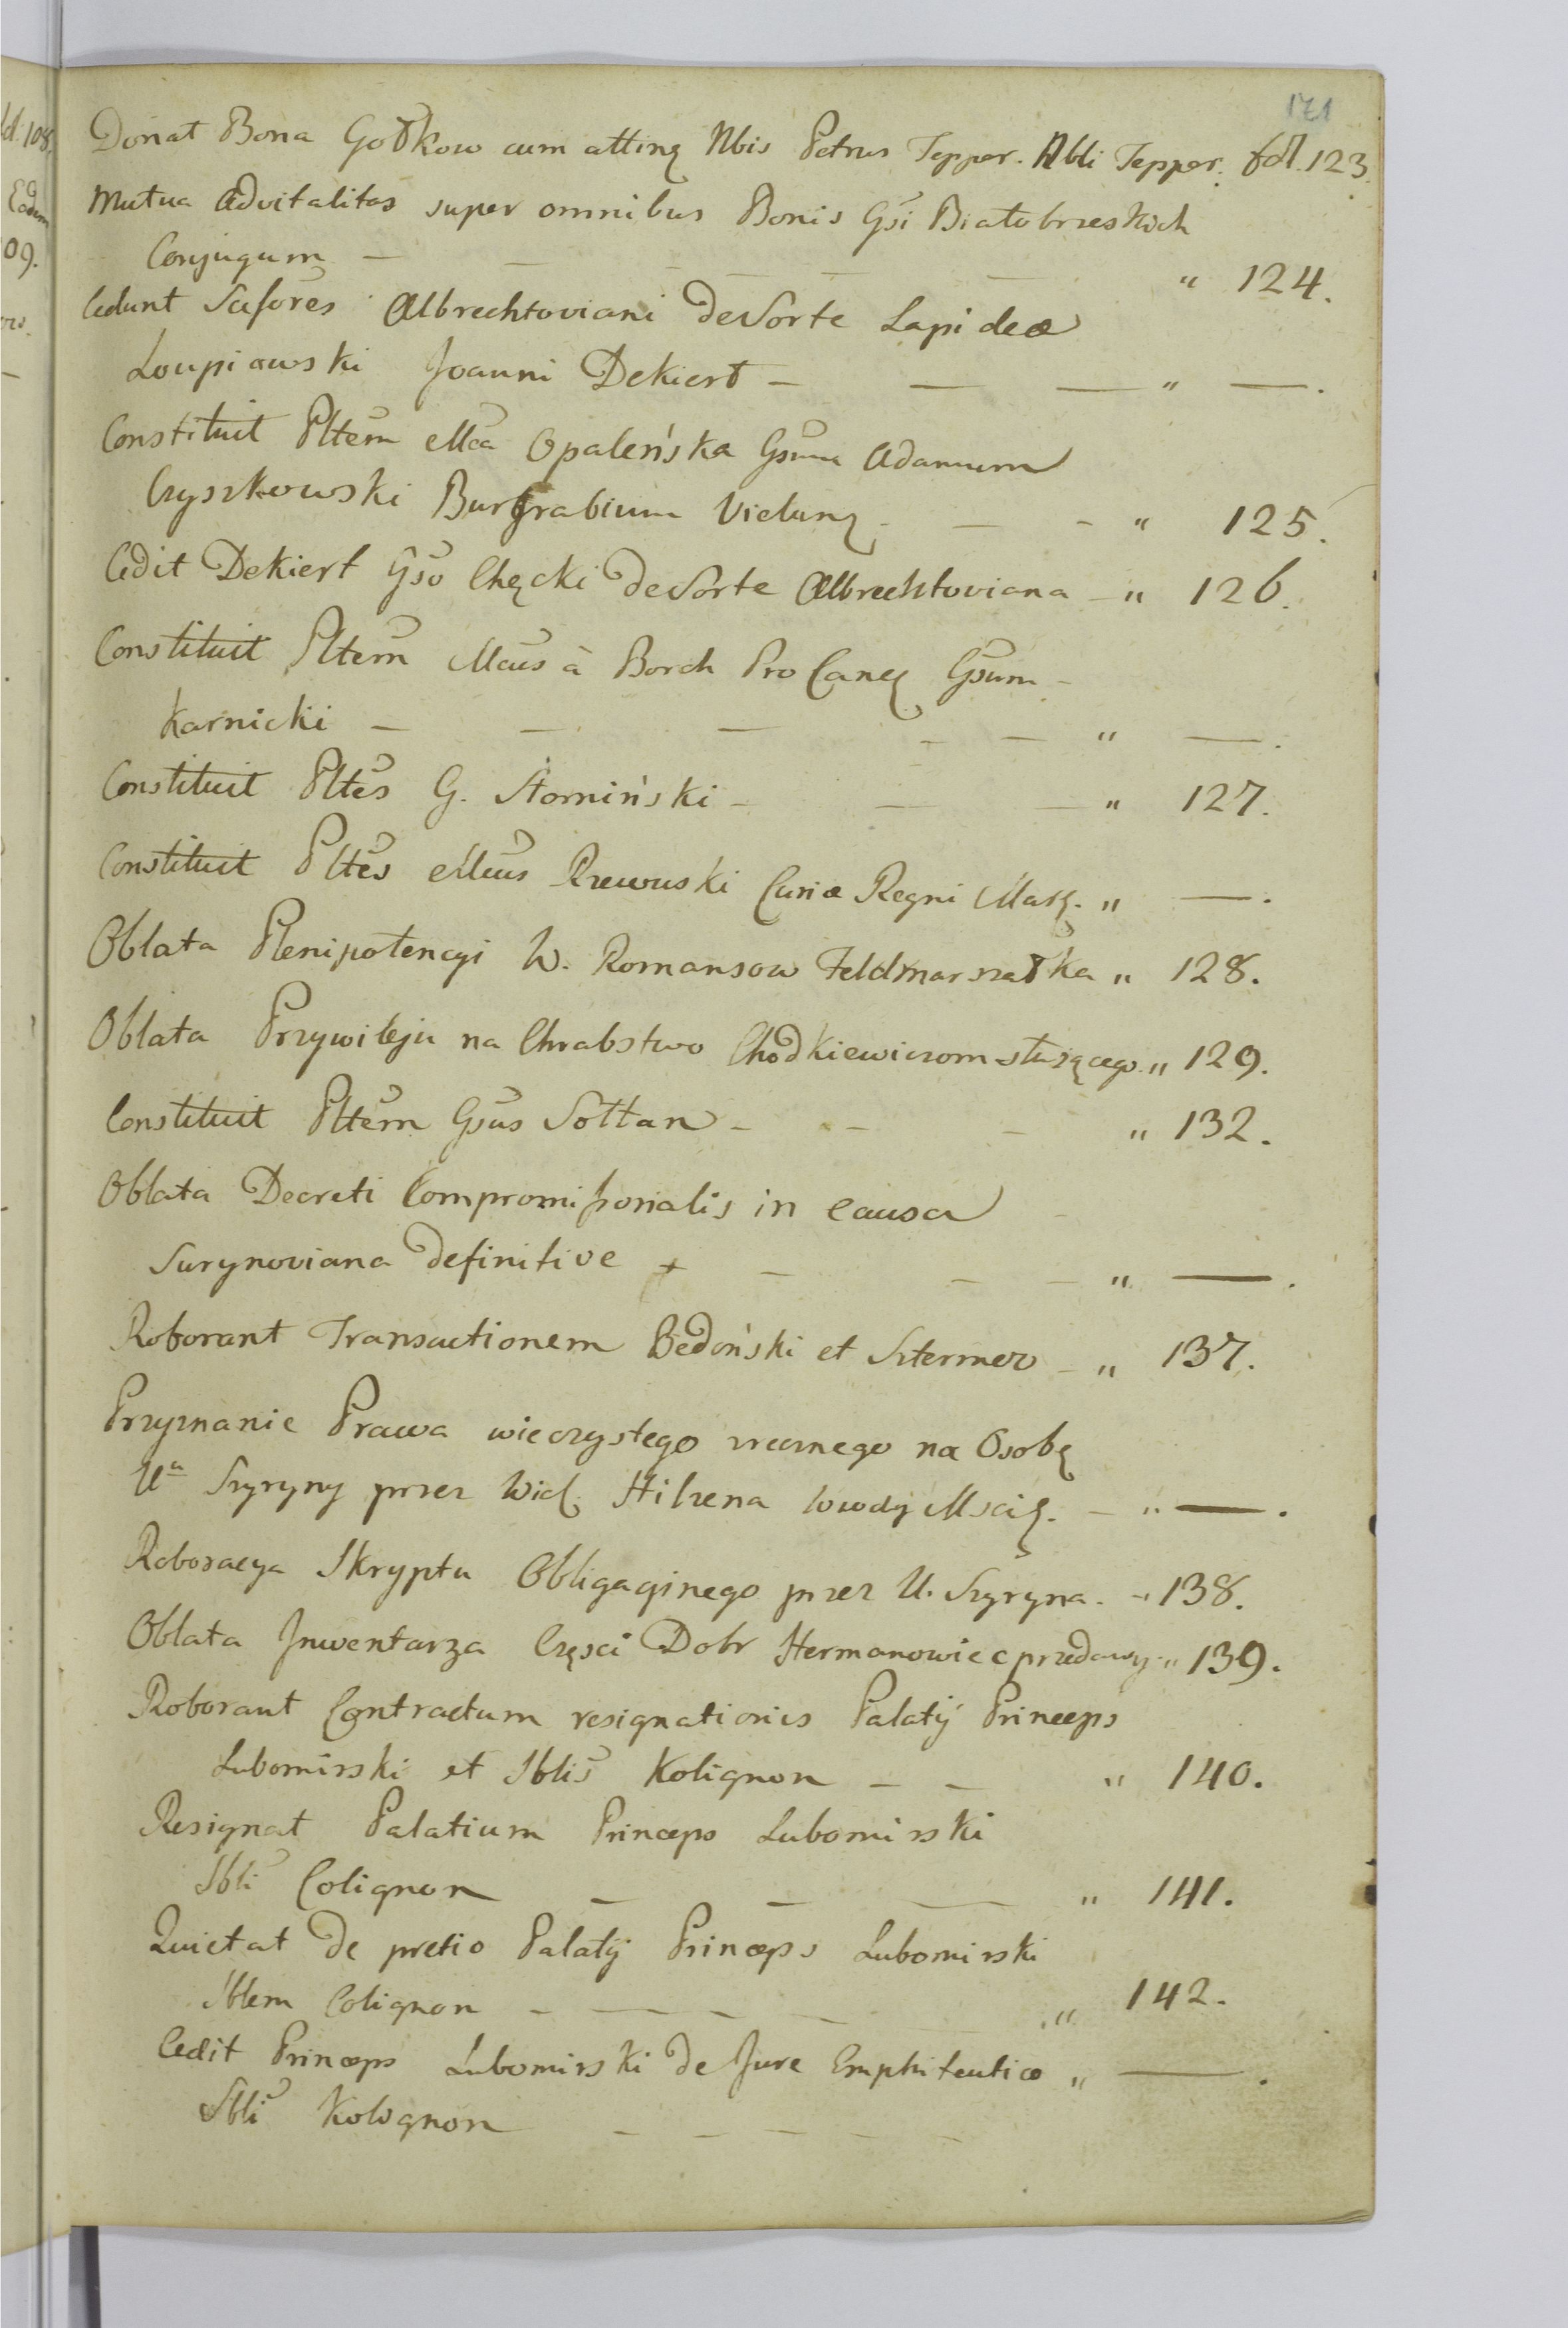 171
Donat Bona Gołkow cum atting Nbis Petrus Tepper. Nbli Tepper. fol. 123.
Mutua Advitalitas super omnibus Bonis Gsi Białobrzeskich
Conjugum — — — — — — " 124.
Cedunt Sufores Albrechtoviani de Sorte Lapideæ
Łoupiawski Joanni Dekiert — — — " —.
Constituit Pltem Mca Opaleńska Gsum Adamum
Czyszkowski Burgrabium Vielung. — - " 125.
Cedit Dekiert Gso Chęcki de Sorte Albrechtoviana — " 126.
Constituit Pltem Mcus à Borch Pro Canc Gsum -
Karnicki — — — - — " —.
Constituit Pltes G. Słomiński - — — " 127.
Constituit Pltes Mcus Rzewuski Curiæ Regni Marς. " —.
Oblata Plenipotencyi W. Romansow Feldmarszałka " 128.
Oblata Przywileju na Chrabstwo Chodkiewiczom służącego. " 129.
Constituit Pltem Gsus Sołtan - - - " 132.
Oblata Decreti Compromissorialis in causa
Surynoviana definitive + - - - " —.
Roborant Transactionem Bedoński et Sztermer - " 137.
Przyznanie Prawa wieczystego wiecznego na Osobę
Ua Szyryny przez Wiel. Hilzena Wwdy Mscis. - " —.
Roboracya Skryptu Obligacyinego przez U. Szyryna. " 138.
Oblata Inwentarza Części Dobr Hermanowiec przedawcy " 139.
Roborant Contractum resignationis Palatij Princeps
Lubomirski et Sblis Kolignon — — " 140.
Resignat Palatium Princeps Lubomirski
Sbli Colignon — — — " 141.
Quietat de pretio Palatij Princeps Lubomirski
Sblem Colignon - — - - " 142.
Cedit Princeps Lubomirski de Jure Emphiteutico " —.
Sbli Kolognon - - - - -
ld. 108.
Eadem
09.